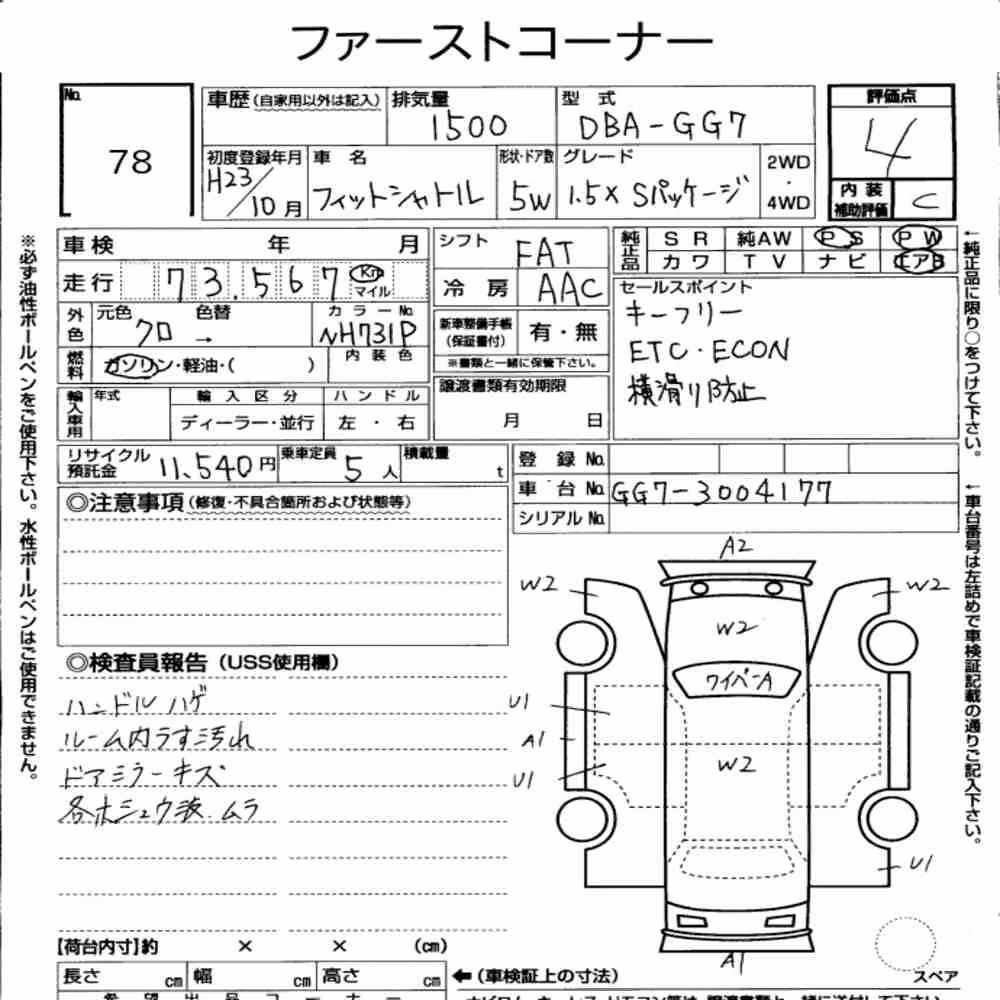 ファーストコーナー
No.
78
車歴(自家用以外は記入) 排気量 1500 型式 DBA-GG7
評価点
4
内装補助評価 C
初度登録年月 H23/10月 車名 フィットシャトル 形状・ドア数 5W グレード 1.5X Sパッケージ 2WD・4WD
車検 年 月
走行 73.567 Km マイル
外色 元色 クロ 色替 → カラーNo. NH731P
燃料 ガソリン・軽油・( ) 内装色
輸入車用 年式 輸入区分 ハンドル
ディーラー・並行 左・右
シフト FAT
冷房 AAC
新車整備手帳(保証書付) 有・無
※書類と一緒に保管下さい。
譲渡書類有効期限
月 日
純正品 SR 純AW PS PW
カワ TV ナビ エアB
セールスポイント
キーフリー
ETC・ECON
横滑り防止
リサイクル預託金 11,540円 乗車定員 5人 積載量 t
登録No.
車台No. GG7-3004177
シリアルNo.
◎注意事項(修復・不具合箇所および状態等)
◎検査員報告(USS使用欄)
ハンドルハゲ
ルーム内うす汚れ
ドアミラーキズ
各ホシュウ波 ムラ
A2
W2 W2
W2
ワイパーA
U1
A1
W2
U1
U1
A1
スペア
【荷台内寸】約 × × (cm)
長さ cm 幅 cm 高さ cm ←(車検証上の寸法)
希望出品コーナー
※必ず油性ボールペンをご使用下さい。水性ボールペンはご使用できません。
←純正品に限り○をつけて下さい。
←車台番号は左詰めで車検証記載の通りご記入下さい。